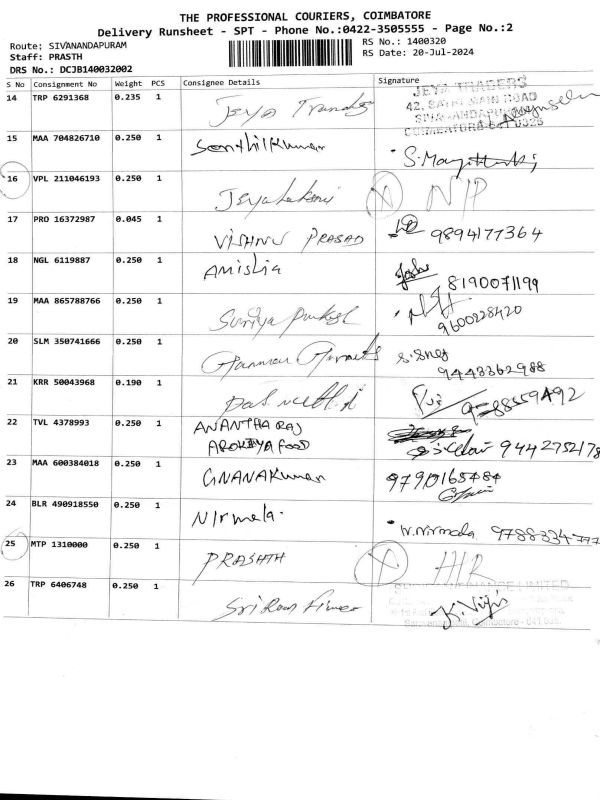 THE PROFESSIONAL COURIERS, COIMBATORE
Delivery Runsheet - SPT - Phone No.:0422-3505555 - Page No.:2
Route: SIVANANDAPURAM
RS No.: 1400320
Staff: PRASTH
RS Date: 20-Jul-2024
DRS No.: DCJB140032002
S No Consignment No Weight PCS Consignee Details Signature
14 TRP 6291368 0.235 1 Jeya JEYA TRADERS
42, SATHI MAIN ROAD
SIVANANDAPURAM
COIMBATORE
15 MAA 704826710 0.250 1 Senthilkumar
16 VPL 211046193 0.250 1 Jeyalakshmi N/P
17 PRO 16372987 0.045 1 VISHNU PRASAD 9894177364
18 NGL 6119887 0.250 1 AMISHA 8190071199
19 MAA 865788766 0.250 1 Suriya Prakash
9600228420
20 SLM 350741666 0.250 1 Garments
9443362988
21 KRR 50043968 0.190 1
22 TVL 4378993 0.250 1 ANANTHA RAJ
AROKIYA FOOD 9442752178
23 MAA 600384018 0.250 1 GNANAKumar 9790165484
24 BLR 490918550 0.250 1 Nirmela. N.Nirmala 9788334777
25 MTP 1310000 0.250 1 PRASHTH
26 TRP 6406748 0.250 1 Sri Ram LIMITED
Coimbatore - 641 035.